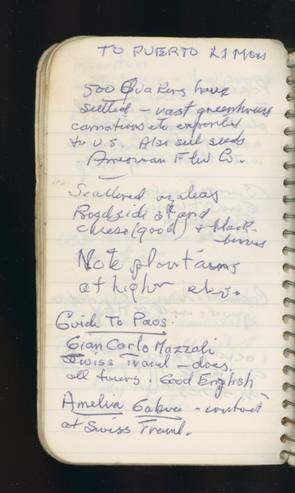 TO PUERTO LIMON
500 Quakers have
settled - vast greenhouses
carnations etc exported
to U.S. Also sell seeds
American Flwr Co.
Scattered azaleas
Roadside stand
cheese (good) + black-
berries
Note plantains
at higher elev.
Guide To Paos.
GianCarlo Mazzali
Swiss Travel - does
all tours. Good English
Amelia - contact
at Swiss Travel.